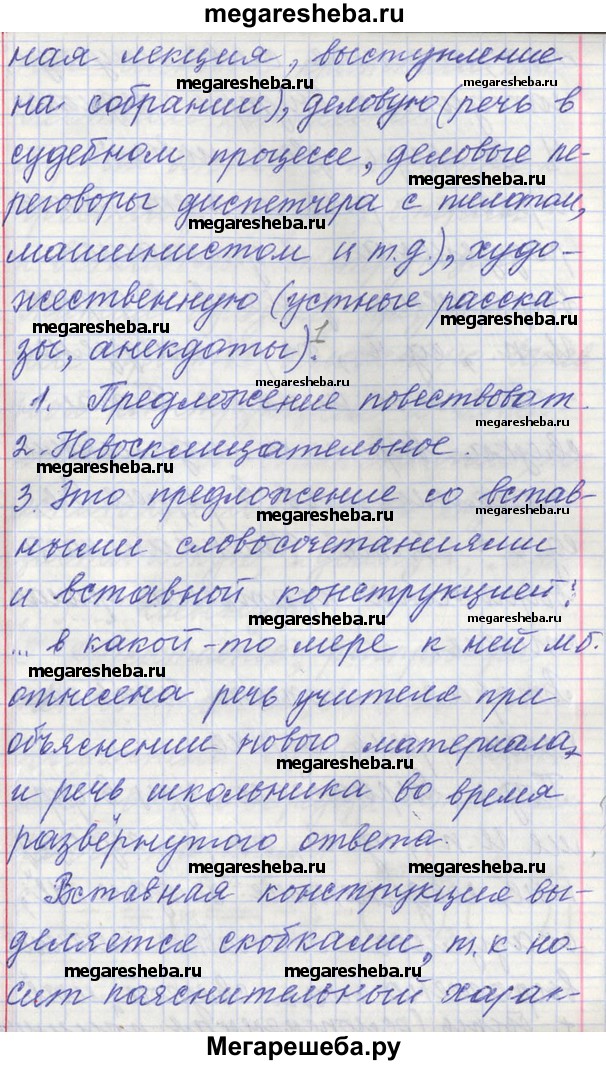 megaresheba.ru
ная лекция, выступление
megaresheba.ru megaresheba.ru
на собрании), деловую (речь в
судебном процессе, деловые пе-
megaresheba.ru
реговоры диспетчера с пилотом,
megaresheba.ru
машинистом и т.д.), худо-
жественную (устные расска-
megaresheba.ru megaresheba.ru
зы, анекдоты).1
megaresheba.ru
1. Предложение повествоват.
megaresheba.ru
2. Невосклицательное.
megaresheba.ru
3. Это предложение со встав-
megaresheba.ru megaresheba.ru
ными словосочетаниями
и вставной конструкцией:
megaresheba.ru megaresheba.ru
... в какой-то мере к ней м.б.
megaresheba.ru
отнесена речь учителя при
объяснении нового материала,
megaresheba.ru
и речь школьника во время
развёрнутого ответа.
megaresheba.ru megaresheba.ru
Вставная конструкция вы-
деляется скобками, т.к но-
megaresheba.ru megaresheba.ru
сит пояснительный харак-
Мегарешеба.ру